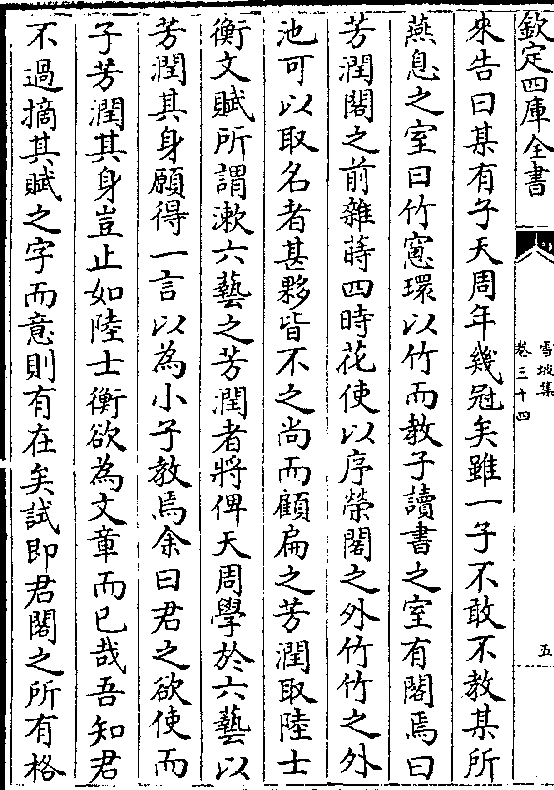 欽定四庫全書
雪坡集
卷三十四
五
來告曰某有子天周年幾冠矣雖一子不敢不教某所
燕息之室曰竹窻環以竹而教子讀書之室有閣焉曰
芳潤閣之前雜蒔四時花使以序榮閣之外竹竹之外
池可以取名者甚夥皆不之尚而顧扁之芳潤取陸士
衡文賦所謂漱六藝之芳潤者將俾天周學於六藝以
芳潤其身願得一言以為小子教焉余曰君之欲使而
子芳潤其身豈止如陸士衡欲為文章而已哉吾知君
不過摘其賦之字而意則有在矣試即君閣之所有格